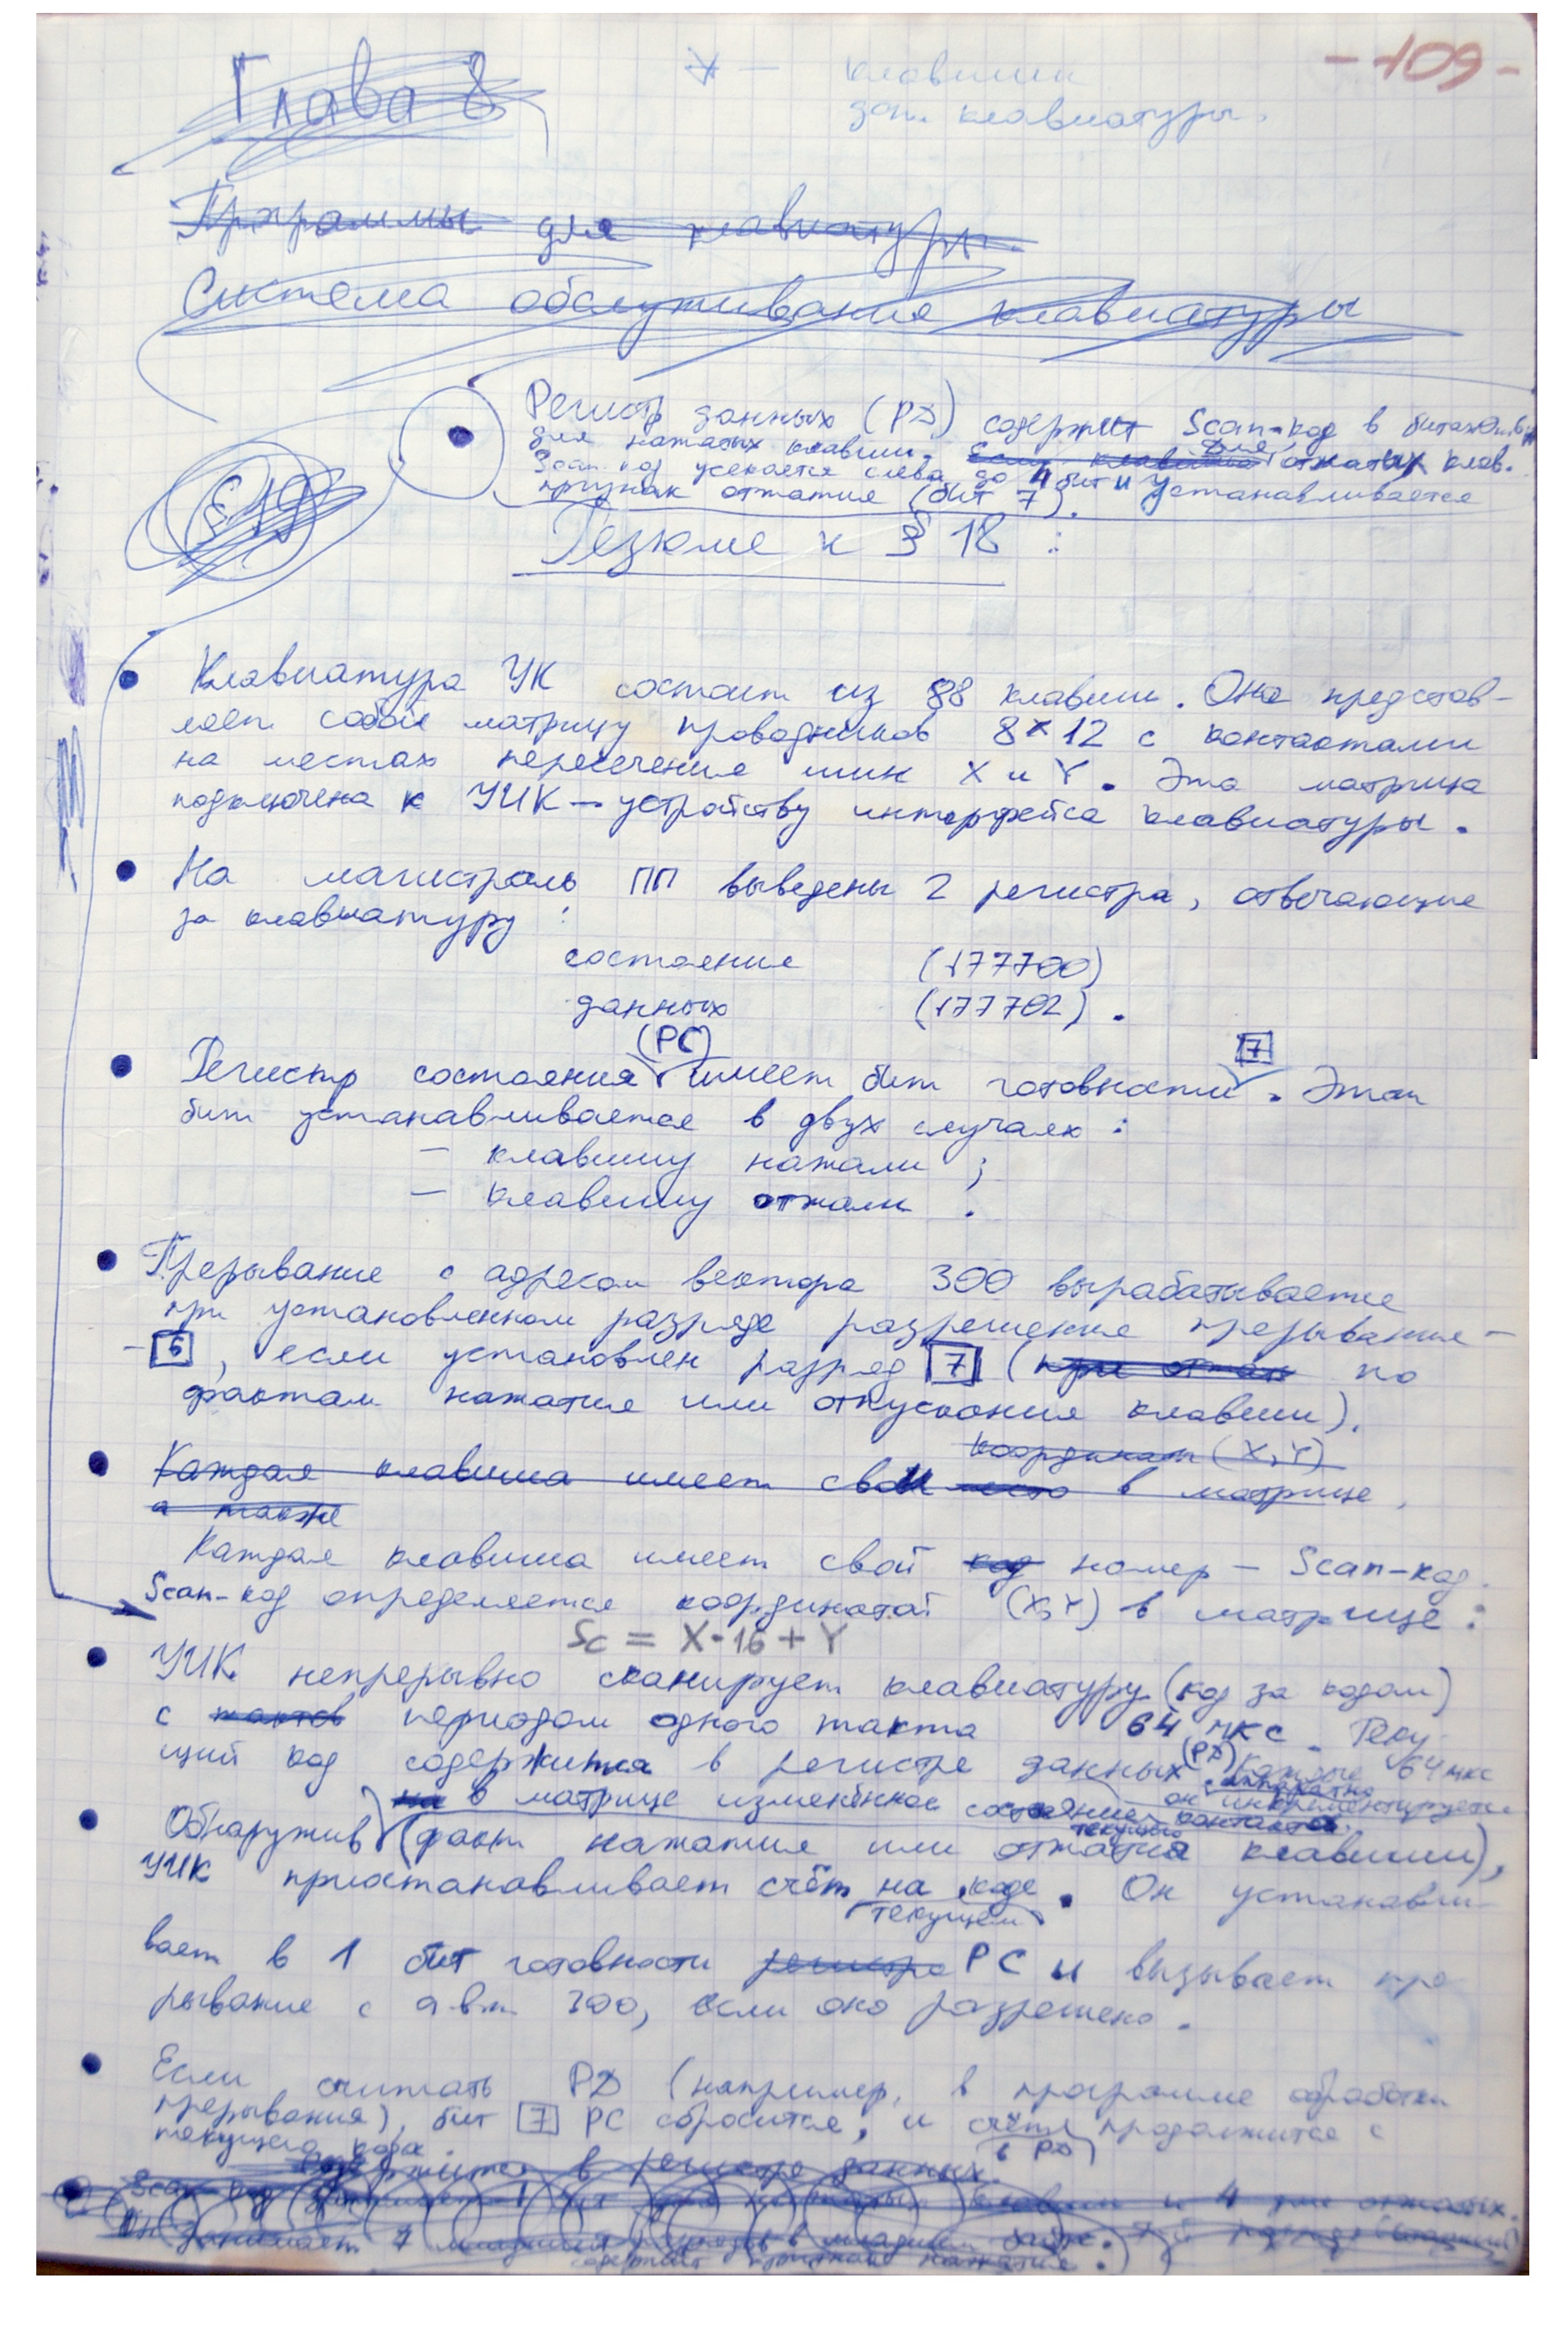 -109-
Глава 8
* — клавиши
доп. клавиатуры.
Программы для клавиатуры
Система обслуживания клавиатуры
Регистр данных (РД) содержит Scan-код в битах
для нажатых клавиш. Если клавиша Для отжатых клав.
Scan-код усекается слева до 4 бит и устанавливается
признак отжатия (бит 7).
§ 19
Резюме к § 18 :
• Клавиатура УК состоит из 88 клавиш. Она представ-
ляет собой матрицу проводников 8×12 с контактами
на местах пересечения шин X и Y. Эта матрица
подключена к УИК — устройству интерфейса клавиатуры.
• На магистраль ПП выведены 2 регистра, отвечающие
за клавиатуру :
состояния (177700)
данных (177702) .
• Регистр состояния (РС) имеет бит готовности 7 . Этот
бит устанавливается в двух случаях :
— клавишу нажали ;
— клавишу отжали .
• Прерывание с адресом вектора 300 вырабатывается
при установленном разряде разрешения прерывания —
- 6 , если установлен разряд 7 (при отжат по
фактам нажатия или отпускания клавиши).
координат (X,Y)
• Каждая клавиша имеет свои место в матрице,
а также
Каждая клавиша имеет свой код номер — Scan-код.
Scan-код определяется координатой (X,Y) в матрице :
Sc = X·16 + Y
• УИК непрерывно сканирует клавиатуру (код за кодом)
с тактов периодом одного такта 64 мкс . Теку-
щий код содержится в регистре данных (РД) Каждые 64 мкс
он аппаратно инкрементируется
на в матрице изменённое состояние текущего контакта
• Обнаружив (факт нажатия или отжатия клавиши),
УИК приостанавливает счёт на текущем коде . Он устанавли-
вает в 1 бит готовности регистра РС и вызывает пре
рывание с а.в.п. 300, если оно разрешено .
• Если считать РД (например, в программе обработки
прерывания), бит 7 РС сбросится, и счёт в РД продолжится с
текущего кода .
содержится в регистре данных.
Scan-код и 4 для отжатых.
Он занимает 7 младших в младшем байте.
содержит признак нажатия.